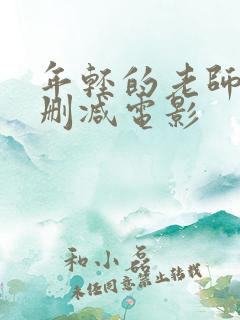 年轻的老师
删减电影
和小磊
未经同意禁止转载